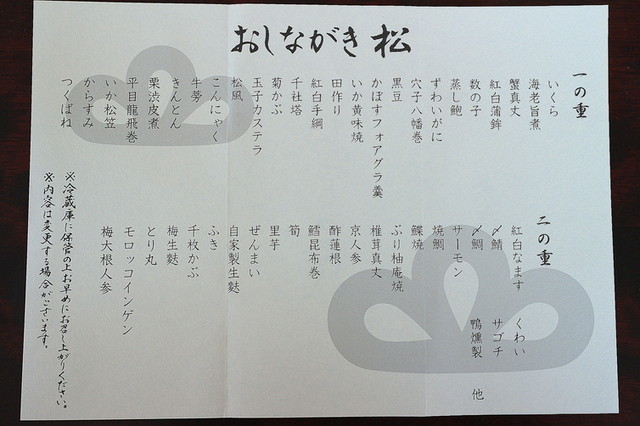 おしながき 松
一の重
いくら
海老旨煮
蟹真丈
紅白蒲鉾
数の子
蒸し鮑
ずわいがに
穴子八幡巻
かぼすフォアグラ羹
黒豆
いか黄味焼
田作り
紅白手綱
千社塔
菊かぶ
玉子カステラ
松風
こんにゃく
牛蒡
きんとん
栗渋皮煮
平目龍飛巻
いか松笠
からすみ
つくばね
二の重
紅白なます
〆鯖
〆鯛
サーモン
焼鯛
鰈焼
ぶり柚庵焼
椎茸真丈
京人参
酢蓮根
鱈昆布巻
筍
里芋
ぜんまい
自家製生麩
ふき
千枚かぶ
梅生麩
とり丸
モロッコインゲン
梅大根人参
くわい
サゴチ
鴨燻製 他
※冷蔵庫に保管の上お早めにお召し上がりください。
※内容は変更する場合がございます。